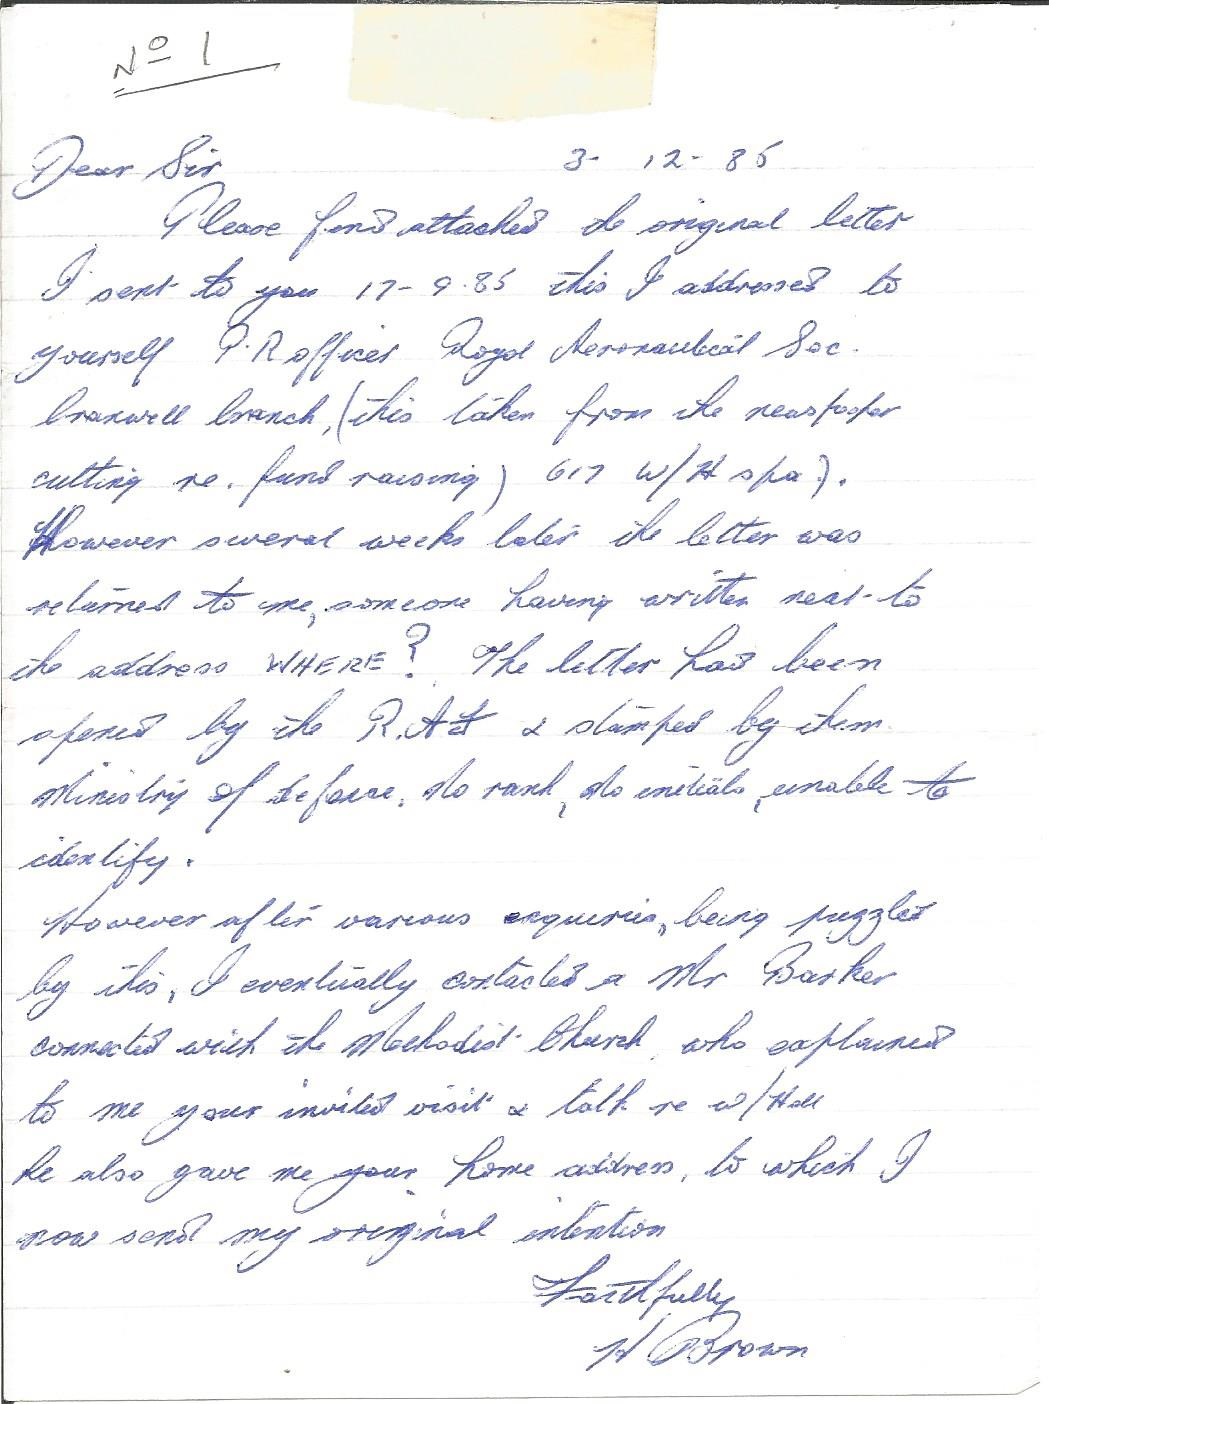 No 1
Dear Sir 3- 12- 85
Please find attached the original letter
I sent to you 17-9-85 this I addressed to
yourself P.R officer Royal Aeronautical Soc.
Cranwell branch, (this taken from the newspaper
cutting re. fund raising) 617 W/H spa).
However several weeks later the letter was
returned to me, someone having written next to
the address WHERE? The letter had been
opened by the R.A.F & stamped by them
Ministry of defence, No rank, No initials, unable to
identify.
However after various enquiries, being puzzled
by this, I eventually contacted a Mr Barker
connected with the Methodist Church, who explained
to me your invited visit & talk re W/Hall
he also gave me your home address, to which I
now send my original intention
Faithfully
H Brown